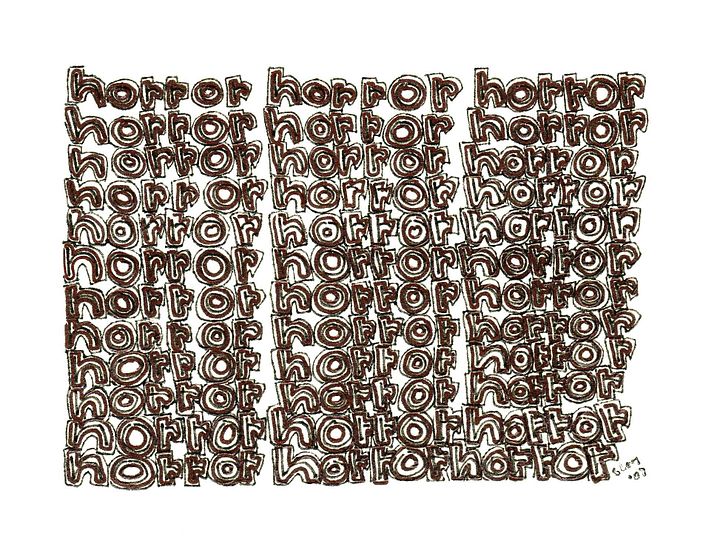 horror horror horror
horror horror horror
horror horror horror
horror horror horror
horror horror horror
horror horror horror
horror horror horror
horror horror horror
horror horror horror
horror horror horror
horror horror horror
horror horror horror